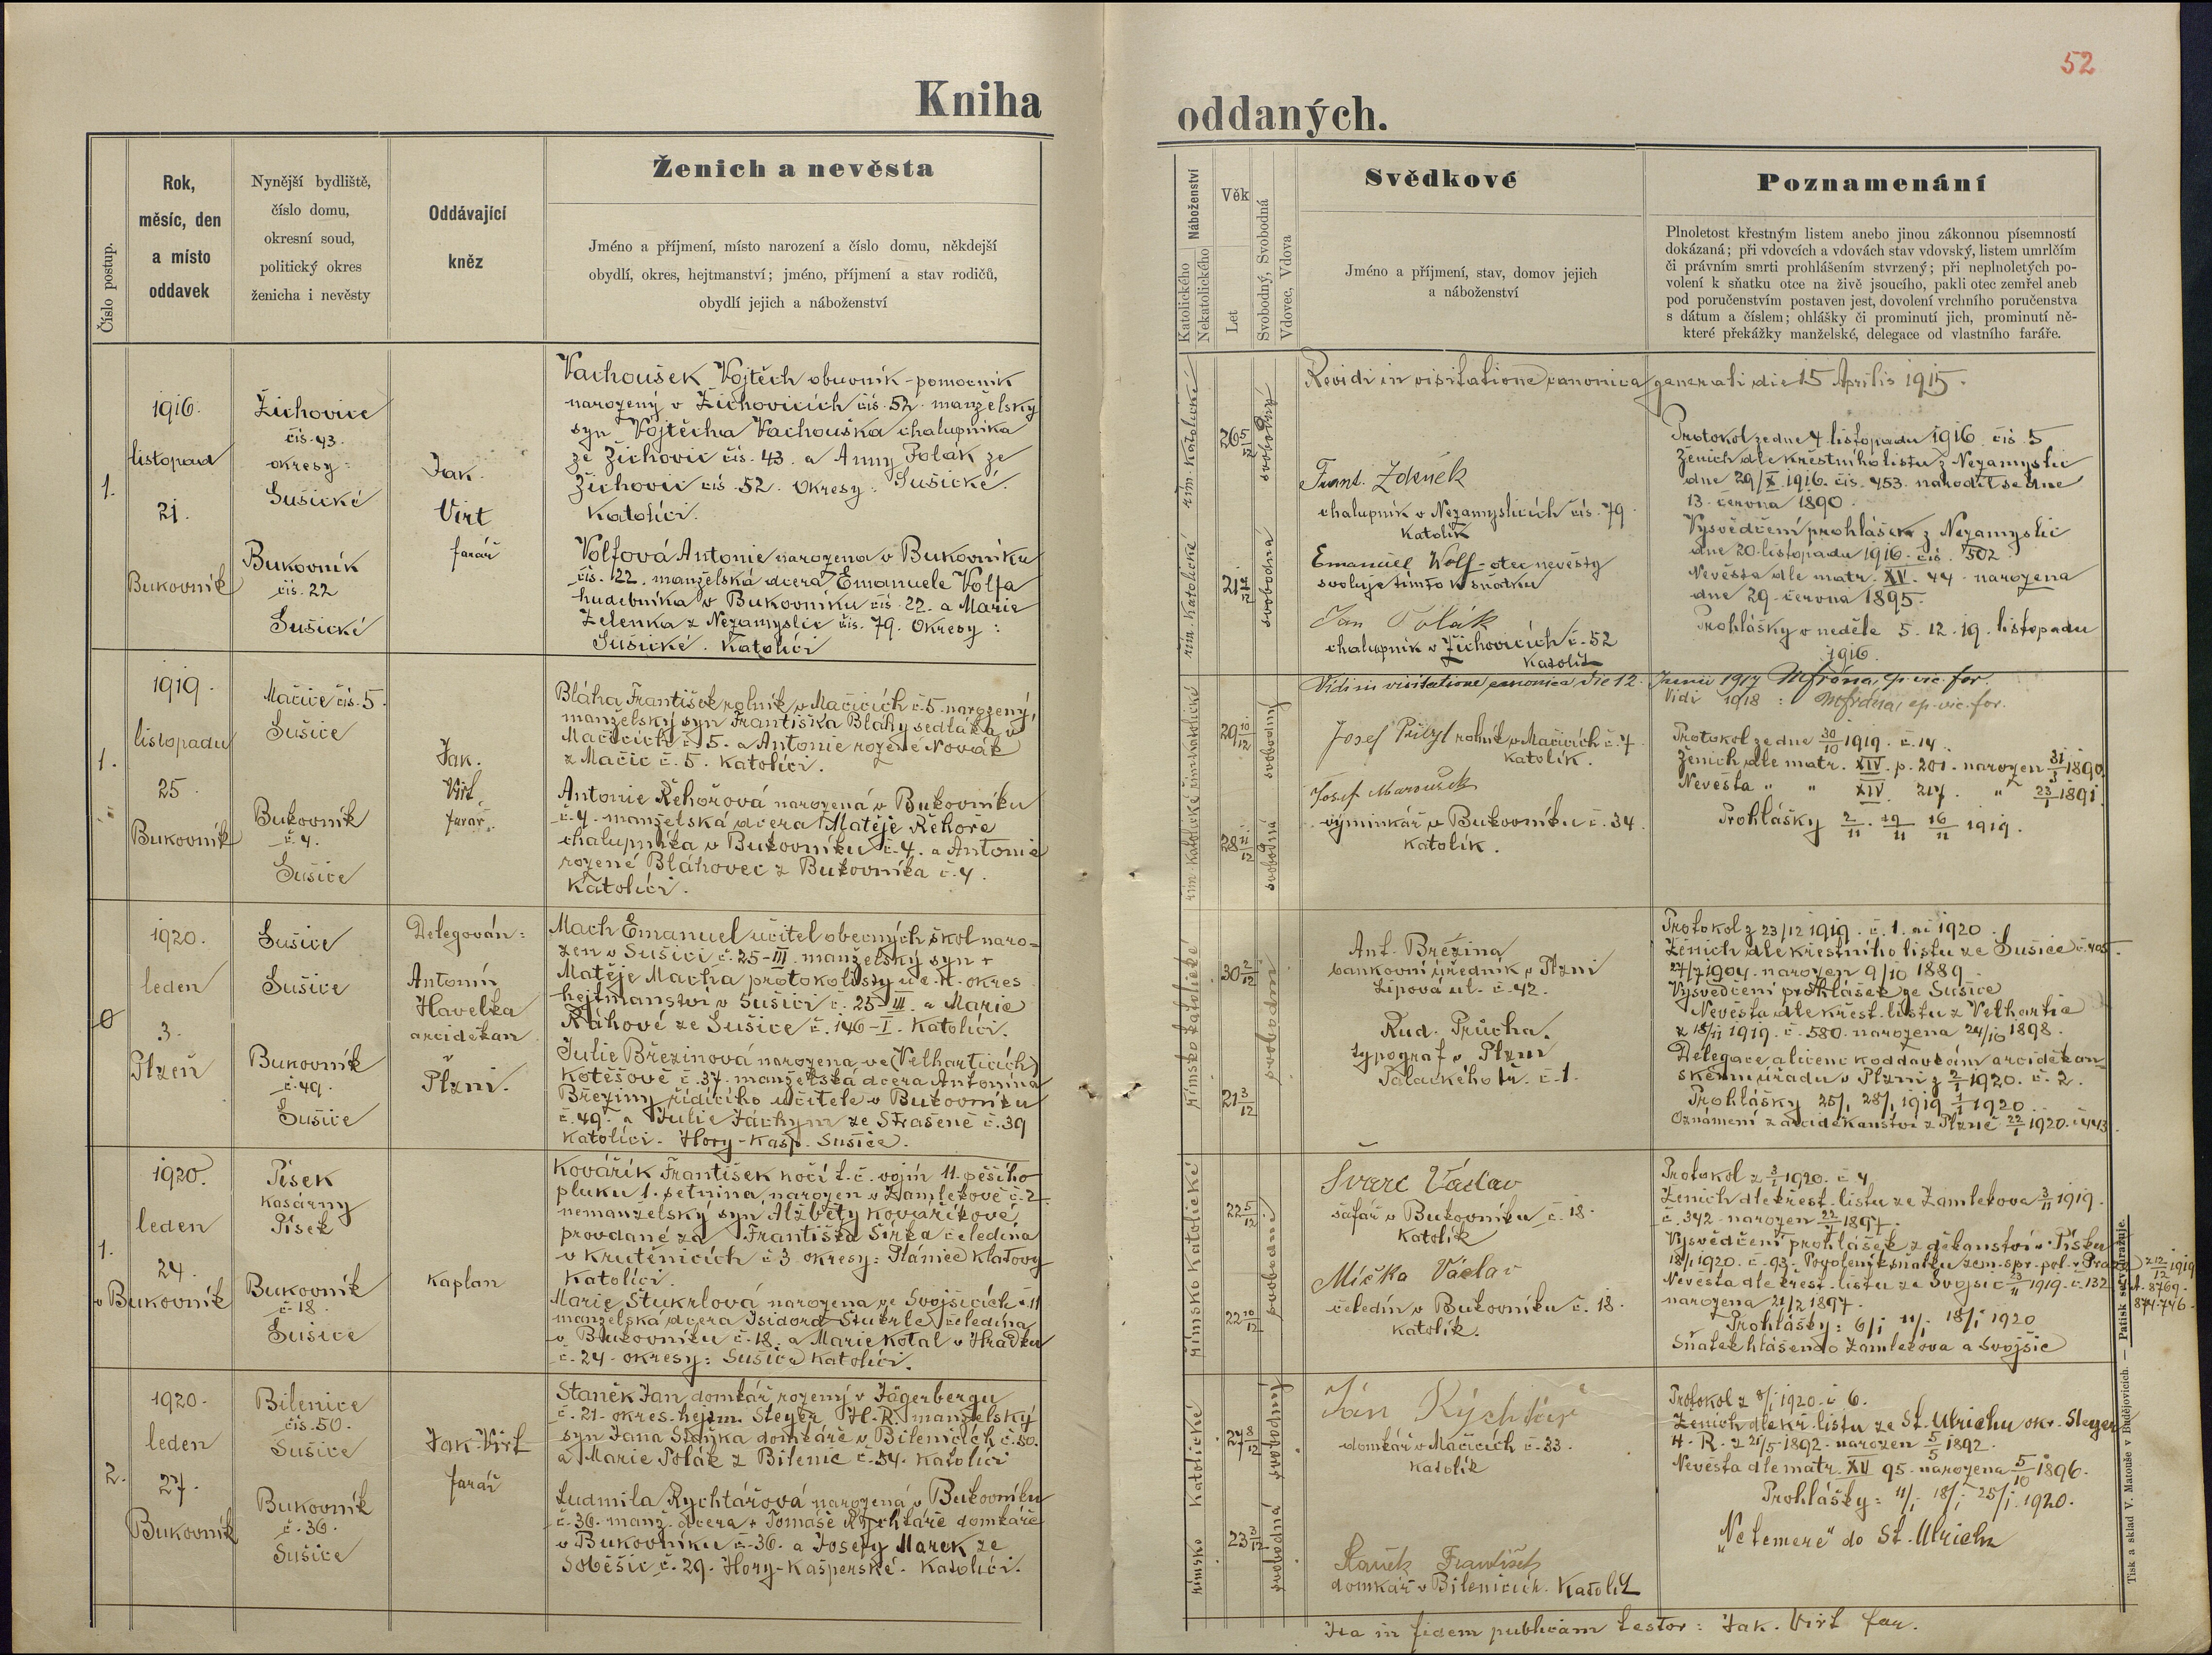 52
Kniha oddaných.
Číslo postup.
Rok,
měsíc, den
a místo
oddavek
Nynější bydliště,
číslo domu,
okresní soud,
politický okres
ženicha i nevěsty
Oddávající
kněz
Ženich a nevěsta
Jméno a příjmení, místo narození a číslo domu, někdejší
obydlí, okres, hejtmanství; jméno, příjmení a stav rodičů,
obydlí jejich a náboženství
Náboženství
Katolického
Nekatolického
Věk
Let
Svobodný, Svobodná
Vdovec, Vdova
Svědkové
Jméno a příjmení, stav, domov jejich
a náboženství
Poznamenání
Plnoletost křestným listem anebo jinou zákonnou písemností
dokázaná; při vdovcích a vdovách stav vdovský, listem umrlčím
či právním smrti prohlášením stvrzený; při neplnoletých po-
volení k sňatku otce na živě jsoucího, pakli otec zemřel aneb
pod poručenstvím postaven jest, dovolení vrchního poručenstva
s dátum a číslem; ohlášky či prominutí jich, prominutí ně-
které překážky manželské, delegace od vlastního faráře.
1.
1916.
listopad
21.
Bukovník
Žichovice
čís. 43.
okresy:
Sušické
Bukovník
čís. 22
Sušické
Jak.
Virt
farář
Vachoušek Vojtěch obuvník-pomocník
narozený v Žichovicích čís. 52. manželský
syn Vojtěcha Vachouška chalupníka
ze Žichovic čís. 43. a Anny Polák ze
Žichovic čís. 52. Okresy: Sušické.
Katolíci.
Volfová Antonie narozena v Bukovníku
čís. 22. manželská dcera Emanuele Volfa
hudebníka v Bukovníku čís. 22. a Marie
Zelenka z Nezamyslic čís. 79. Okresy:
Sušické. Katolíci
řím. katolické
řím. katolické
26 5/12
21
svobodný
svobodná
Revidi in visitatione canonica generali die 15 Aprilis 1915.
Frant. Zdeněk
chalupník v Nezamyslicích čís. 79
Katolík
Emanuel Wolf - otec nevěsty
svoluje tímto k sňatku
Jan Polák
chalupník v Žichovicích č. 52
Katolík
Protokol ze dne 4. listopadu 1916. čís. 5
Ženich dle křestního listu z Nezamyslic
dne 29/X 1916. čís. 453. narodil se dne
13. června 1890.
Vysvědčení prohlášek z Nezamyslic
dne 20. listopadu 1916. čís. 502
Nevěsta dle matr. XV. 44. narozena
dne 29. června 1895.
Prohlášky v neděle 5. 12. 19. listopadu
1916.
Vidi in visitatione canonica die 12. Junii 1917 ep. vic. for.
Vidi 1918: ep. vic. for.
1.
1919.
listopadu
25.
Bukovník
Mačice čís. 5.
Sušice
Bukovník
č. 4.
Sušice
Jak.
Virt
farář.
Bláha František rolník v Mačicích č. 5. narozený,
manželský syn Františka Bláhy sedláka v
Mačicích č. 5. a Antonie rozené Novák
z Mačic č. 5. Katolíci.
Antonie Řehořová narozená v Bukovníku
č. 4. manželská dcera Matěje Řehoře
chalupníka v Bukovníku č. 4. a Antonie
rozené Bláhovec z Bukovníka č. 4.
Katolíci.
řím. katolické římskokatolické
29 10/12
28 11/12
svobodný
svobodná
Josef Přibyl rolník v Mačicích č. 7
Katolík.
Josef Maroušek
výminkář v Bukovníku č. 34.
Katolík.
Protokol ze dne 30/10 1919. č. 14.
Ženich dle matr. XIV. p. 201. narozen 31/1 1890
Nevěsta " " XIV 217. " 23/1 1891.
Prohlášky 2/11. 9/11 16/11 1919.
0
1920.
leden
3.
Plzeň
Sušice
Sušice
Bukovník
č. 49.
Sušice
Delegován:
Antonín
Havelka
arciděkan
v
Plzni.
Mach Emanuel učitel obecných škol naro-
zen v Sušici č. 25-III. manželský syn +
Matěje Macha protokolisty u c. k. okres.
hejtmanství v Sušici č. 25-III. a Marie
Ráhové ze Sušice č. 146-I. Katolíci.
Julie Březinová narozena ve (Velharticích)
Kotěšově č. 37. manželská dcera Antonína
Březiny řídícího učitele v Bukovníku
č. 49. a Julie Jáchym ze Strašeně č. 39
Katolíci. Hory-Kašp. Sušice.
římsko katolické
30 2/12
21 3/12
svobodní
Ant. Březina
bankovní úředník v Plzni
Lipová ul. č. 42.
Rud. Průcha.
typograf v Plzni
Palackého tř. č. 1.
Protokol z 23/12 1919. č. 1. ai 1920.
Ženich dle křestního listu ze Sušice č. 405.
27/7 1904. narozen 9/10 1889.
Vysvědčení prohlášek ze Sušice
Nevěsta dle křest. listu z Velhartic
z 18/11 1919. č. 580. narozena 24/10 1898.
Delegace a licenc k oddavkám arciděkan-
skému úřadu v Plzni z 2/1 1920. č. 2.
Prohlášky 25/, 28/, 1919 1/1 1920.
Oznámení z arciděkanství z Plzně 22/1 1920. č. 443.
1.
1920.
leden
24.
v Bukovník
Písek
Kasárny
Písek
Bukovník
č. 18.
Sušice
Kaplan
Kovářík František kočí t. č. vojín 11. pěšího
pluku 1. setnina, narozen v Zamlekově č. 2
nemanželský syn Alžběty Kovaříkové
provdané za Františka Šírka čeledína
v Krutěnicích č. 3. okresy: Plánice Klatovy
Katolíci.
Marie Štukrlová narozena ve Svojšicích č. 11
manželská dcera Isidora Štukrle čeledína
v Bukovníku č. 18. a Marie Kotal v Hrádku
č. 24. okresy: Sušice Katolíci.
římsko katolické
22 5/12
22 10/12
svobodní
Švarc Václav
šafář v Bukovníku č. 18.
Katolík
Míčka Václav
čeledín v Bukovníku č. 18.
Katolík.
Protokol z 3/1 1920. č. 4.
Ženich dle křest. listu ze Zamlekova 3/11 1919.
č. 342. narozen 22/7 1897.
Vysvědčení prohlášek z děkanství v Písku
18/1 1920. č. 93. Povolení k sňatku zem. spr. pol. v Praze z 12/12 1919
Nevěsta dle křest. listu ze Svojšic 23/11 1919. č. 132. čt. 8769.
narozena 21/2 1897. 874.746.
Prohlášky: 6/1 11/1 18/1 1920
Sňatek hlášen do Zamlekova a Svojšic
2.
1920.
leden
27.
Bukovník
Bilenice
čís. 50.
Sušice
Bukovník
č. 36.
Sušice
Jak. Virt
farář
Staněk Jan domkář rozený v Jägerbergu
č. 21. okres. hejtm. Steyer H.-R. manželský
syn Jana Staňka domkáře v Bilenicích č. 50.
a Marie Polák z Bilenic č. 54. Katolíci
Ludmila Rychtářová narozená v Bukovníku
č. 36. manž. dcera + Tomáše Rychtáře domkáře
v Bukovníku č. 36. a Josefy Marek ze
Soběšic č. 29. Hory-Kašperské. Katolíci.
římsko katolické
27 8/12
23 3/12
svobodný
svobodná
Ján Rychtář
domkář v Mačicích č. 33.
Katolík
Staněk František
domkář v Bilenicích. Katolík
Protokol z 8/1 1920. č. 6.
Ženich dle kř. listu ze St. Ulrichu okr. Steyer
H.-R. z 21/5 1892. narozen 5/5 1892.
Nevěsta dle matr. XV 95. narozena 5/10 1896.
Prohlášky: 11/1 18/1 25/1. 1920.
„Ne temere" do St. Ulrichu
Ita in fidem publicam testor: Jak. Virt far.
Tisk a sklad V. Matouše v Budějovicích. — Patisk se vyhražuje.